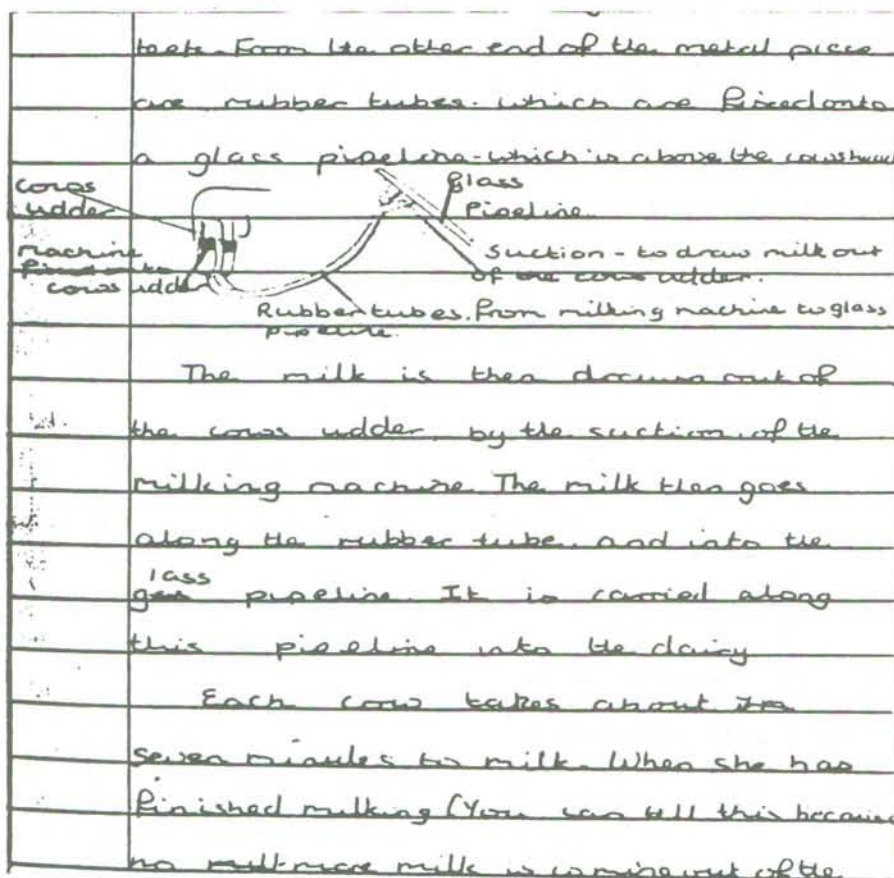 teets. From the otter end of the metal piece
are rubber tubes. which are fixed onto
a glass pipeline - which is above the cows head
cows
udder
glass
Pipeline.
machine
fixed onto
cows udder
Suction - to draw milk out
of the cows udder.
Rubber tubes. from milking machine to glass
pipeline.
The milk is then drawn out of
the cows udder by the suction. of the
milking machine. The milk then goes
along the rubber tube. and into the
glass pipeline. It is carried along
this pipeline into the dairy
Each cow takes about
seven minutes to milk. When she has
finished milking (You can tell this because
no more milk is coming out of the